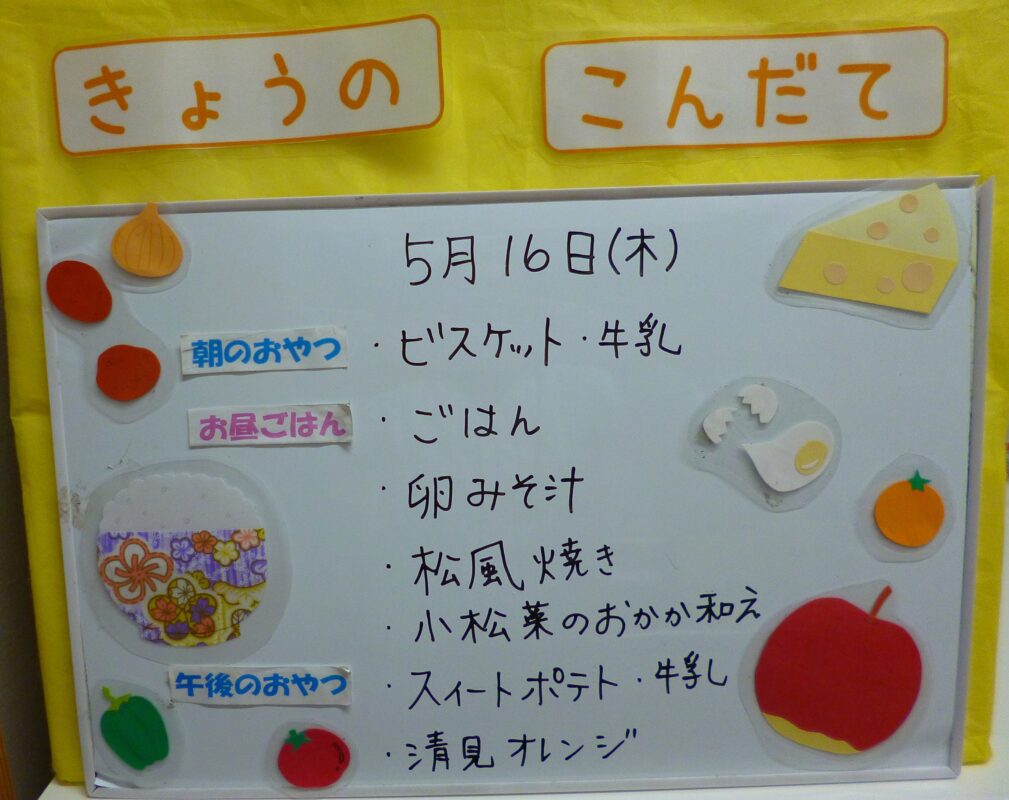 きょうの こんだて
5月16日(木)
朝のおやつ ・ビスケット・牛乳
お昼ごはん ・ごはん
・卵みそ汁
・松風焼き
・小松菜のおかか和え
午後のおやつ ・スイートポテト・牛乳
・清見オレンジ